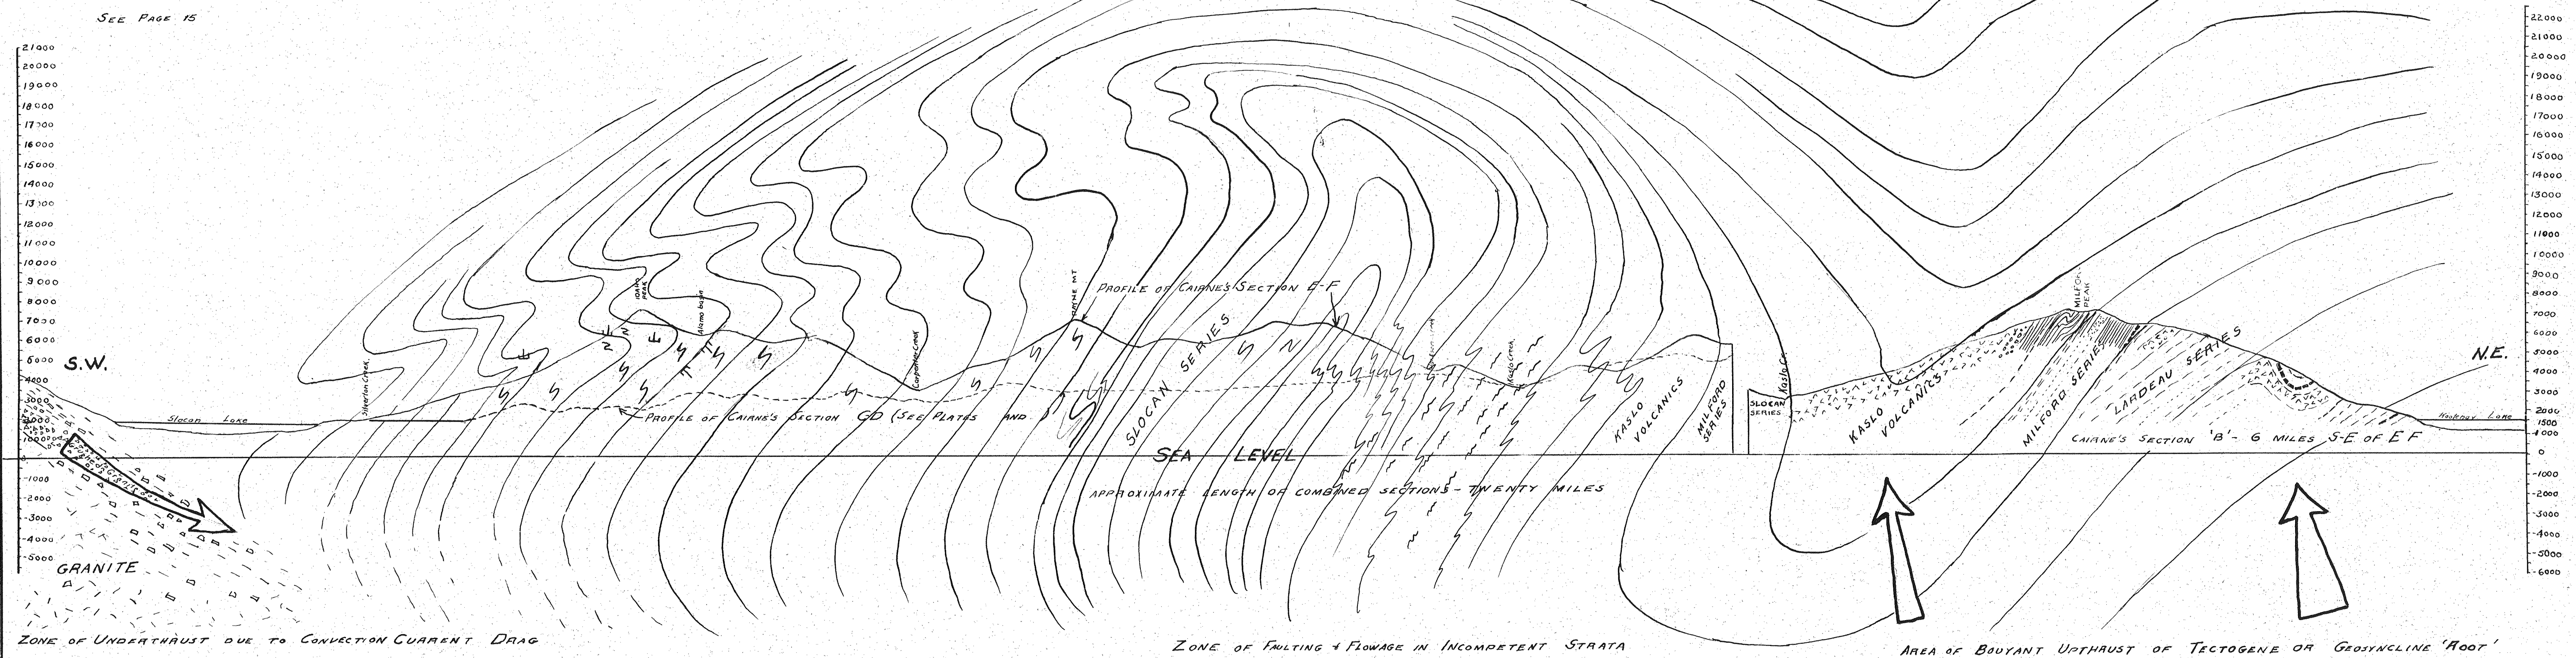 SEE PAGE 15
21000
20000
19000
18000
17000
16000
15000
14000
13000
12000
11000
10000
9000
8000
7000
6000
5000
4000
3000
2000
1000
-1000
-2000
-3000
-4000
-5000
S.W.
Slocan Lake
GRANITE
Silverton Creek
IDAHO PEAK
Alamo basin
Carpenter Creek
PAYNE MT
PROFILE OF CAIRNE'S SECTION E-F
PROFILE OF CAIRNE'S SECTION CD (SEE PLATES AND
SLOCAN SERIES
SEA LEVEL
APPROXIMATE LENGTH OF COMBINED SECTIONS - TWENTY MILES
KASLO VOLCANICS
MILFORD SERIES
SLOCAN SERIES
Kaslo
KASLO VOLCANICS
MILFORD PEAK
MILFORD SERIES
LARDEAU SERIES
CAIRNE'S SECTION 'B' - 6 MILES S-E OF E F
N.E.
Kootenay Lake
22000
21000
20000
19000
18000
17000
16000
15000
14000
13000
12000
11000
10000
9000
8000
7000
6000
5000
4000
3000
2000
1500
1000
0
-1000
-2000
-3000
-4000
-5000
-6000
ZONE OF UNDERTHRUST DUE TO CONVECTION CURRENT DRAG
ZONE OF FAULTING & FLOWAGE IN INCOMPETENT STRATA
AREA OF BOUYANT UPTHRUST OF TECTOGENE OR GEOSYNCLINE 'ROOT'